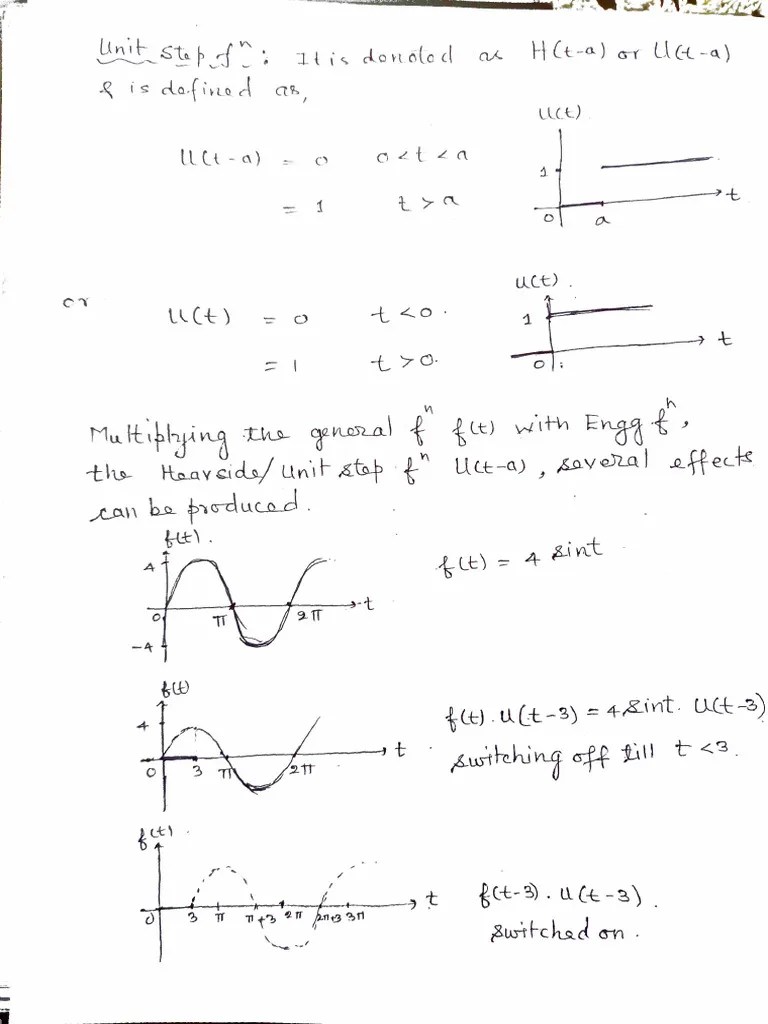 Unit step fⁿ : It is denoted as H(t-a) or U(t-a)
& is defined as,
U(t)
U(t-a) = 0 0<t<a
1
= 1 t>a
t
0 a
U(t).
or U(t) = 0 t<0.
1
t
= 1 t>0.
0
Multiplying the general fⁿ f(t) with Engg fⁿ,
the Heavside/Unit step fⁿ U(t-a), several effects
can be produced.
f(t).
4
f(t) = 4 sint
0 π 2π t
-4
f(t)
4
f(t).U(t-3) = 4 sint. U(t-3)
t
switching off till t<3.
0 3 π 2π
f(t).
t
f(t-3).U(t-3).
0 3 π π+3 2π 2π+3 3π
switched on.